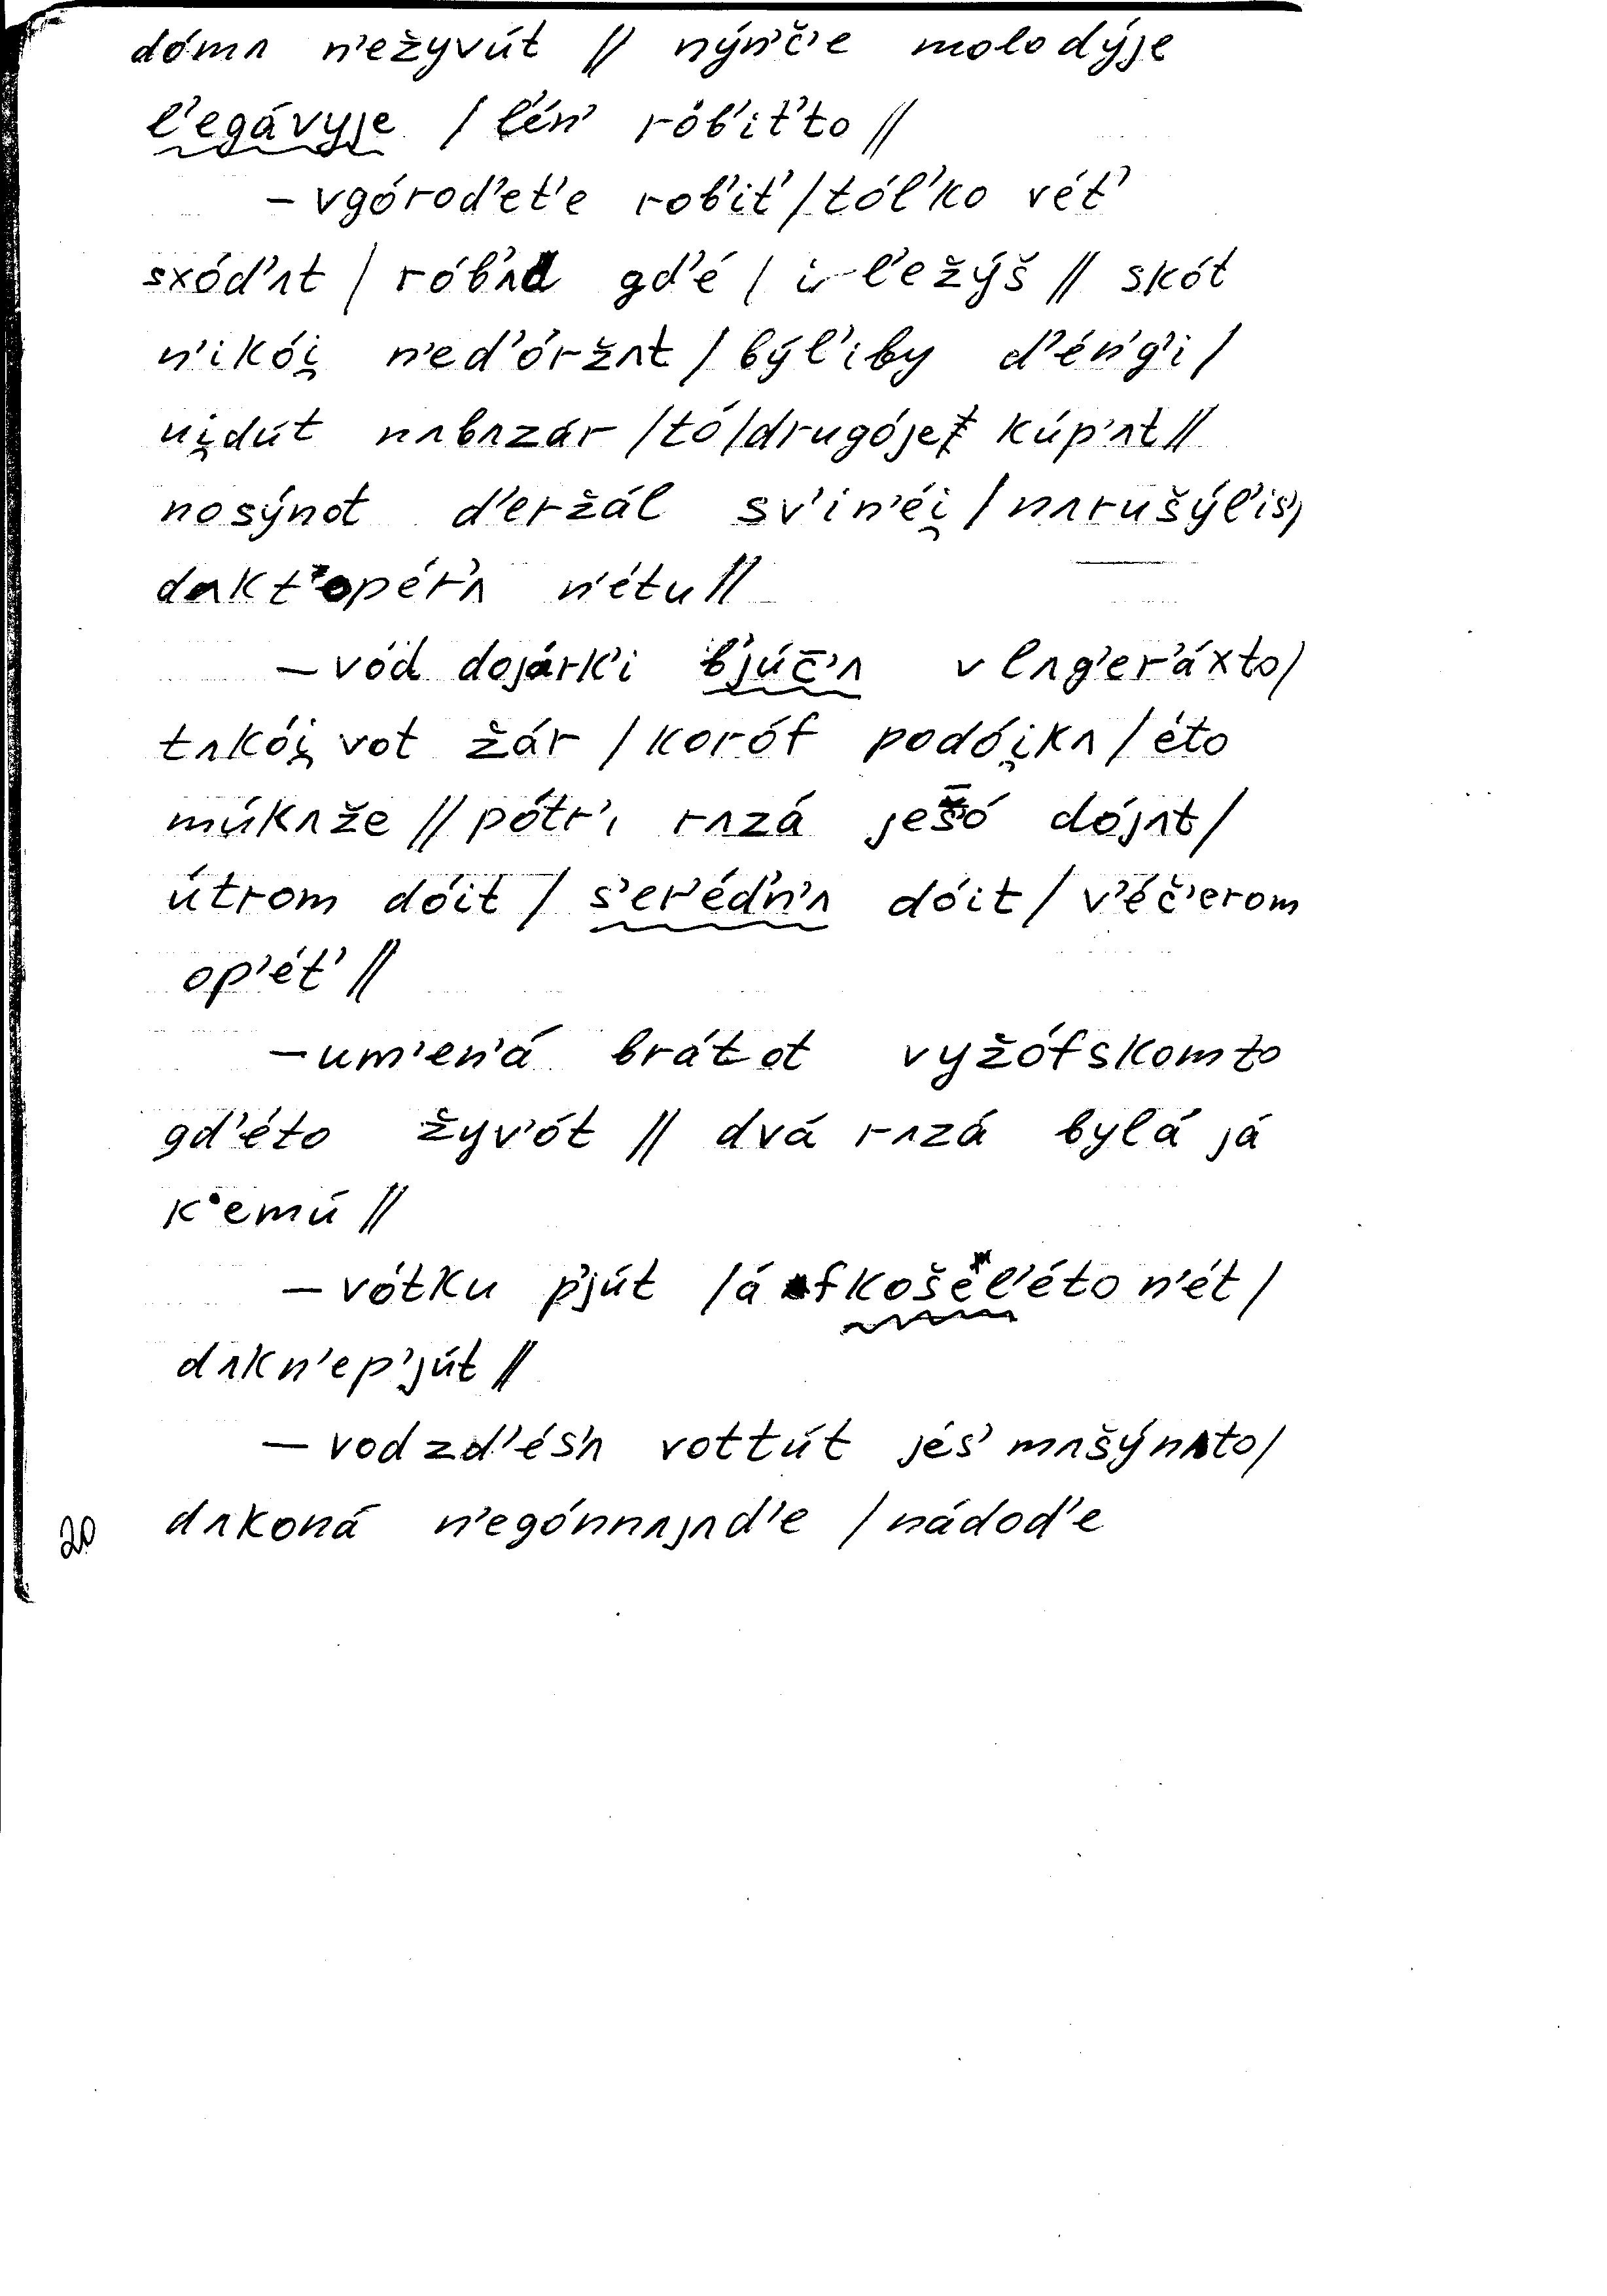 dómʌ n'ežyvút // nýn'č'e molodýje
l'egávyje / l'én' rób'it'to //
– vgórod'et'e rob'it' / tól'ko vét'
sxód'ʌt / rób'ʌd gd'é / i l'ežýš // skót
n'ikói̯ n'ed'óržʌt / býl'iby d'én'g'i /
ui̯dút nʌbʌzár / tó / drugóje kúp'ʌt //
nosýnot d'eržál sv'in'éi̯ / nʌrušýl'is' /
dʌkt'opér'ʌ n'étu //
– vód dojárk'i b'júč'ʌ v lʌg'er'áxto /
tʌkói̯ vot žár / koróf podói̯kʌ / éto
múkʌže // pótr'i rʌzá ješ̄ó dójʌt /
útrom dóit / s'er'éd'n'ʌ dóit / v'éč'erom
op'ét' //
– um'en'á brátot vyžófskomto
gd'éto žyv'ót // dvá rʌzá bylá já
k'emú //
– vótku p'jút / á fkošel'éto n'ét /
dʌkn'ep'jút //
– vod zd'és'ʌ vottút jés' mʌšýnʌto /
20 dʌkoná n'egónnʌjʌd'e / nádod'e